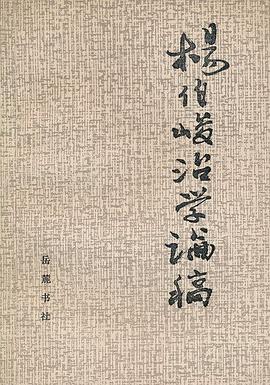 楊伯峻治学論稿
岳麓书社